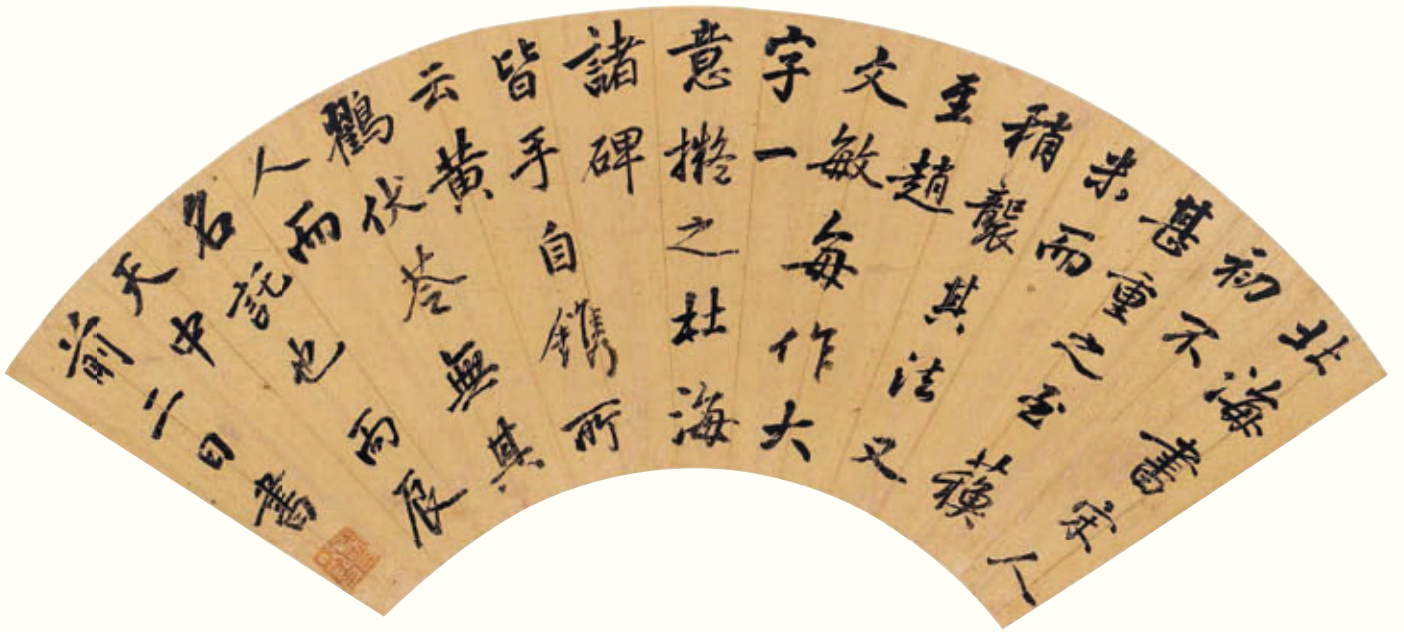 北海書宋人
初不
甚重之至蘇
米而
稍襲其法又
至趙
文敏每作大
字一
意擬之杜海
諸碑
皆手自鐫所
云黃
鶴伏苓無其
人而
名託也丙辰
天中
前二日書